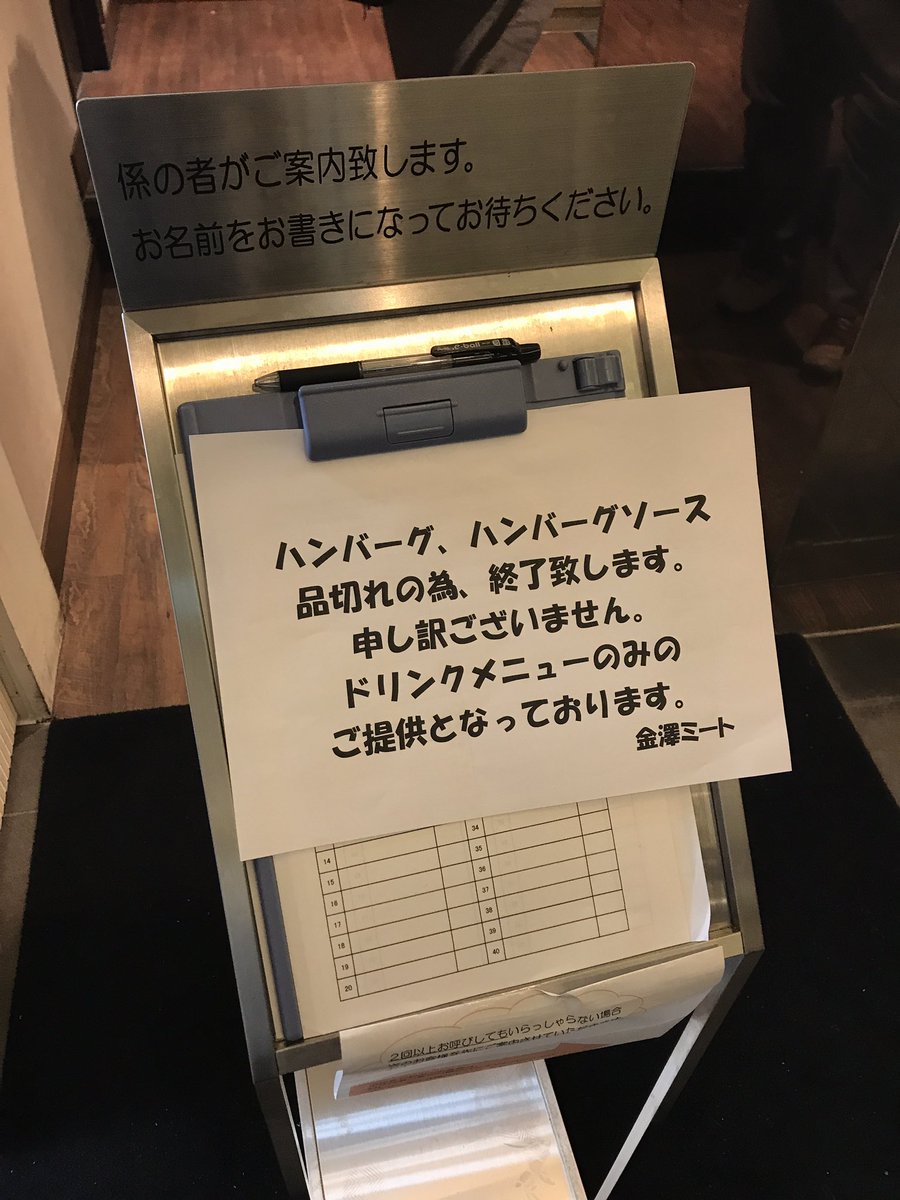 係の者がご案内致します。
お名前をお書きになってお待ちください。
e-ball
ハンバーグ、ハンバーグソース
品切れの為、終了致します。
申し訳ございません。
ドリンクメニューのみの
ご提供となっております。
金澤ミート
14
15
16
17
18
19
20
34
35
36
37
38
39
40
2回以上お呼びしてもいらっしゃらない場合